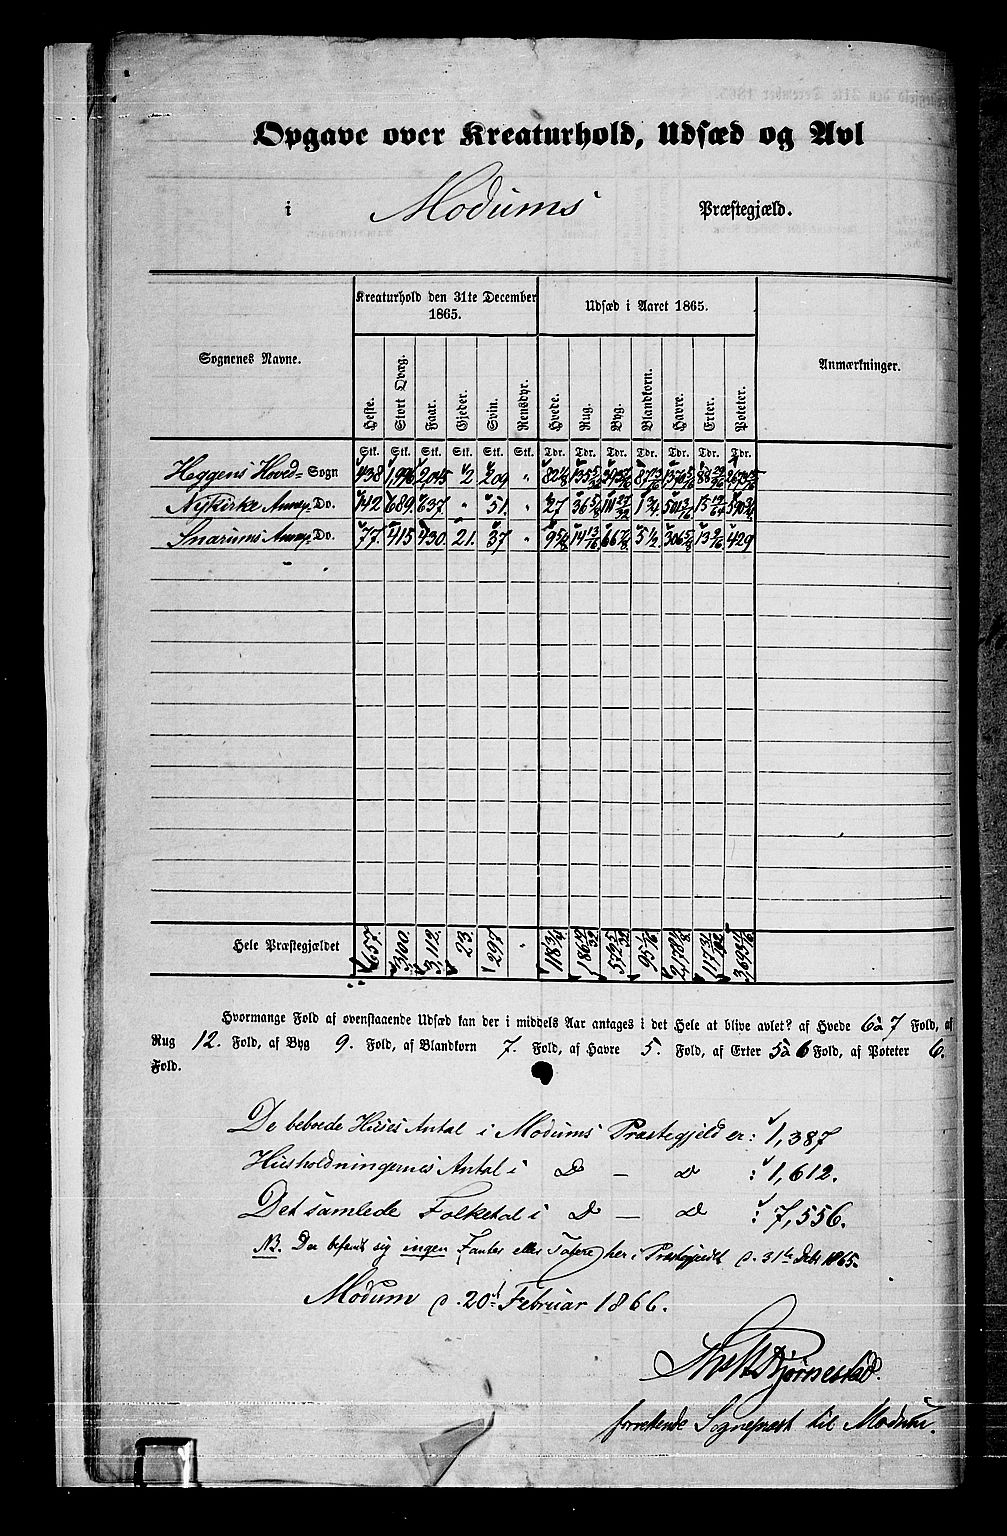 Opgave over Kreaturhold, Udsæd og Avl
i Modums Præstegjæld.
Sognenes Navne. Kreaturhold den 31te December 1865. Udsæd i Aaret 1865. Anmærkninger.
Heste. Stort Qvæg. Faar. Gjeder. Svin. Rensdyr. Hvede. Rug. Byg. Blandkorn. Havre. Erter. Poteter.
Stk. Stk. Stk. Stk. Stk. Stk. Tdr. Tdr. Tdr. Tdr. Tdr. Tdr. Tdr.
Heggens Hoved-Sogn 438 1996 2,045 2 209 "
Nykirke Annex Do. 142 689 637 " 51. " 27 36 5/8
Snarums Annex Do. 77. 415 430 21. 37 " 9 5/8 66 7/8 5 1/2 306 5/8 429
Hele Præstegjældet 657. 3,100 3,112. 23. 297 "
Hvormange Fold af ovenstaaende Udsæd kan der i middels Aar antages i det Hele at blive avlet? af Hvede 6 à 7 Fold, af
Rug 12. Fold, af Byg 9. Fold, af Blandkorn 7. Fold, af Havre 5. Fold, af Erter 5 à 6 Fold, af Poteter 6.
Fold.
De beboede Huses Antal i Modums Præstegjeld er: 1,387
Husholdningernes Antal i D — D : 1,612.
Det samlede Folketal i D — D : 7,556.
NB. Der befandt sig ingen Fanter eller Tatere her i Præstegjeldet d. 31te Decbr 1865.
Modum d. 20de Februar 1866.
Bjørnestad.
Sognepræst til Modum.